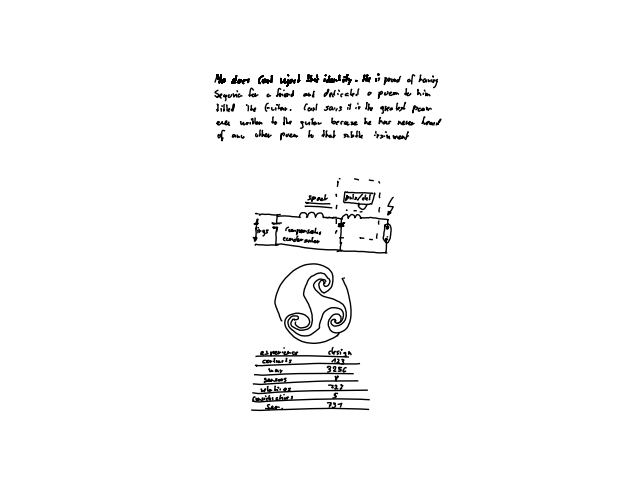 No does Cool reject that identity. He is proud of having
Segovia for a friend and dedicated a poem to him
titled The Guitar. Cool says it is the greatest poem
ever written to the guitar because he has never heard
of any other poem to that subtle instrument
spoel
condensator
experience design
contracts 123
3256
sensors 8
considerations 5
Sam. 731